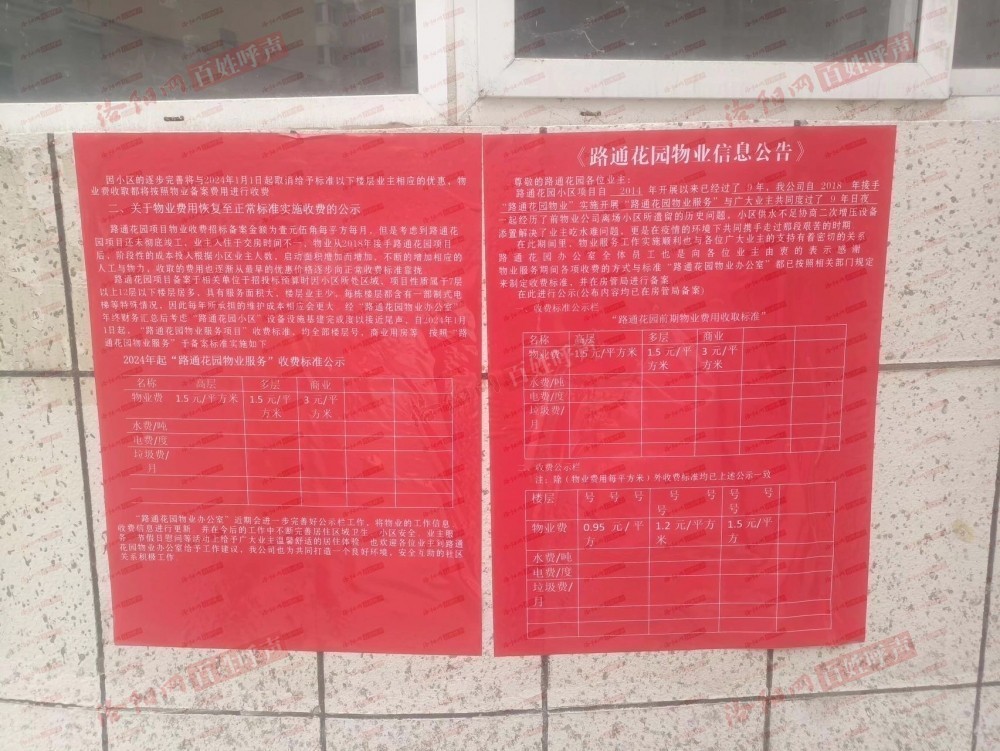 因小区的逐步完善将与2024年1月1日起取消给予标准以下楼层业主相应的优惠，物
业费收取都将按照物业备案费用进行收费
二、关于物业费用恢复至正常标准实施收费的公示
路通花园项目物业收费招标备案金额为壹元伍角每平方每月，但是考虑到路通花
园项目还未彻底竣工，业主入住于交房时间不一，物业从2018年接手路通花园项目
后，阶段性的成本投入根据小区业主人数，启动面积增加而增加，不断的增加相应的
人工与物力，收取的费用也逐渐从最早的优惠价格逐步向正常收费标准靠拢
路通花园项目备案于相关单位于招投标预算时因小区所处区域、项目性质属于7层
以上12层以下楼层居多，具有服务面积大，楼层业主少，每栋楼层都含有一部制式电
梯等特殊情况，因此每年所承担的维护成本相应会更大，经“路通花园物业办公室”
年终财务汇总后考虑“路通花园小区”设备设施基建完成度以接近尾声，自2024年1月
1日起，“路通花园物业服务项目”收费标准，均全部楼层号，商业用房等，按照“路
通花园物业服务”于备案标准实施如下
2024年起“路通花园物业服务”收费标准公示
名称 高层 多层 商业
物业费 1.5 元/平方米 1.5 元/平方米 3 元/平方米
水费/吨
电费/度
垃圾费/月
“路通花园物业办公室”近期会进一步完善好公示栏工作，将物业的工作信息
收费信息进行更新，并在今后的工作中不断完善居住区域卫生，小区安全，业主服
务，节假日慰问等活动上给予广大业主温馨舒适的居住体验，也欢迎各位业主到路通
花园物业办公室给予工作建议，我公司也为共同打造一个良好环境，安全互助的社区
关系积极工作
《路通花园物业信息公告》
尊敬的路通花园各位业主：
路通花园小区项目自 2014 年开展以来已经过了 9 年，我公司自 2018 年接手
“路通花园物业”实施开展“路通花园物业服务”与广大业主共同度过了 9 年日夜
一起经历了前物业公司离场小区所遗留的历史问题，小区供水不足协商二次增压设备
添置解决了业主吃水难问题，更是在疫情的环境下共同携手走过那段艰苦的时期
在此期间里，物业服务工作实施顺利也与各位广大业主的支持有着密切的关系
路通花园办公室全体员工也是向各位业主由衷的表示感谢
物业服务期间各项收费的方式与标准“路通花园物业办公室”都已按照相关部门规定
来制定收费标准，并在房管局进行备案
在此进行公示(公布内容均已在房管局备案)
一、收费标准公示栏
“路通花园前期物业费用收取标准”
名称 高层 多层 商业
物业费 1.5 元/平方米 1.5 元/平方米 3 元/平方米
水费/吨
电费/度
垃圾费/月
二、收费公示栏
注：除（物业费用每平方米）外收费标准均已上述公示一致
楼层 号 号 号 号 号 号
物业费 0.95 元/平方 1.2 元/平方米 1.5 元/平方
水费/吨
电费/度
垃圾费/月
洛阳网百姓呼声